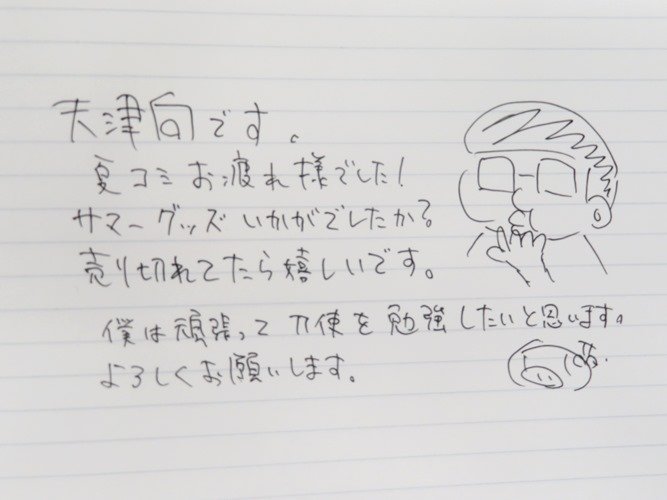 天津向です。
夏コミお疲れ様でした!
サマーグッズいかがでしたか?
売り切れてたら嬉しいです。
僕は頑張って
を勉強したいと思います。
よろしくお願いします。